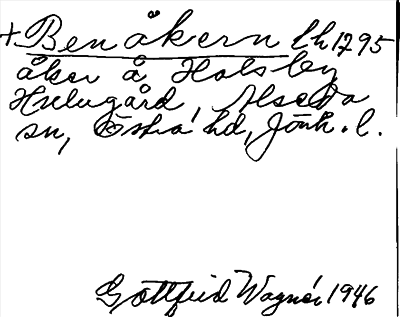 + Benåkern Lh 1795
åker å Holsby
Hulugård, Alseda
sn, Östra hd, Jönk. l.
Gottfrid Wagnér 1946